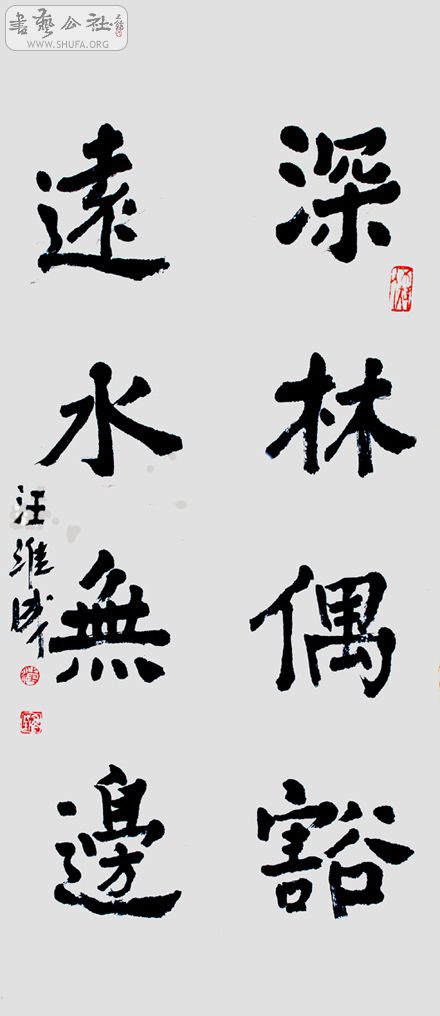 書藝公社
WWW.SHUFA.ORG
深林偶豁
遠水無邊
汪維成